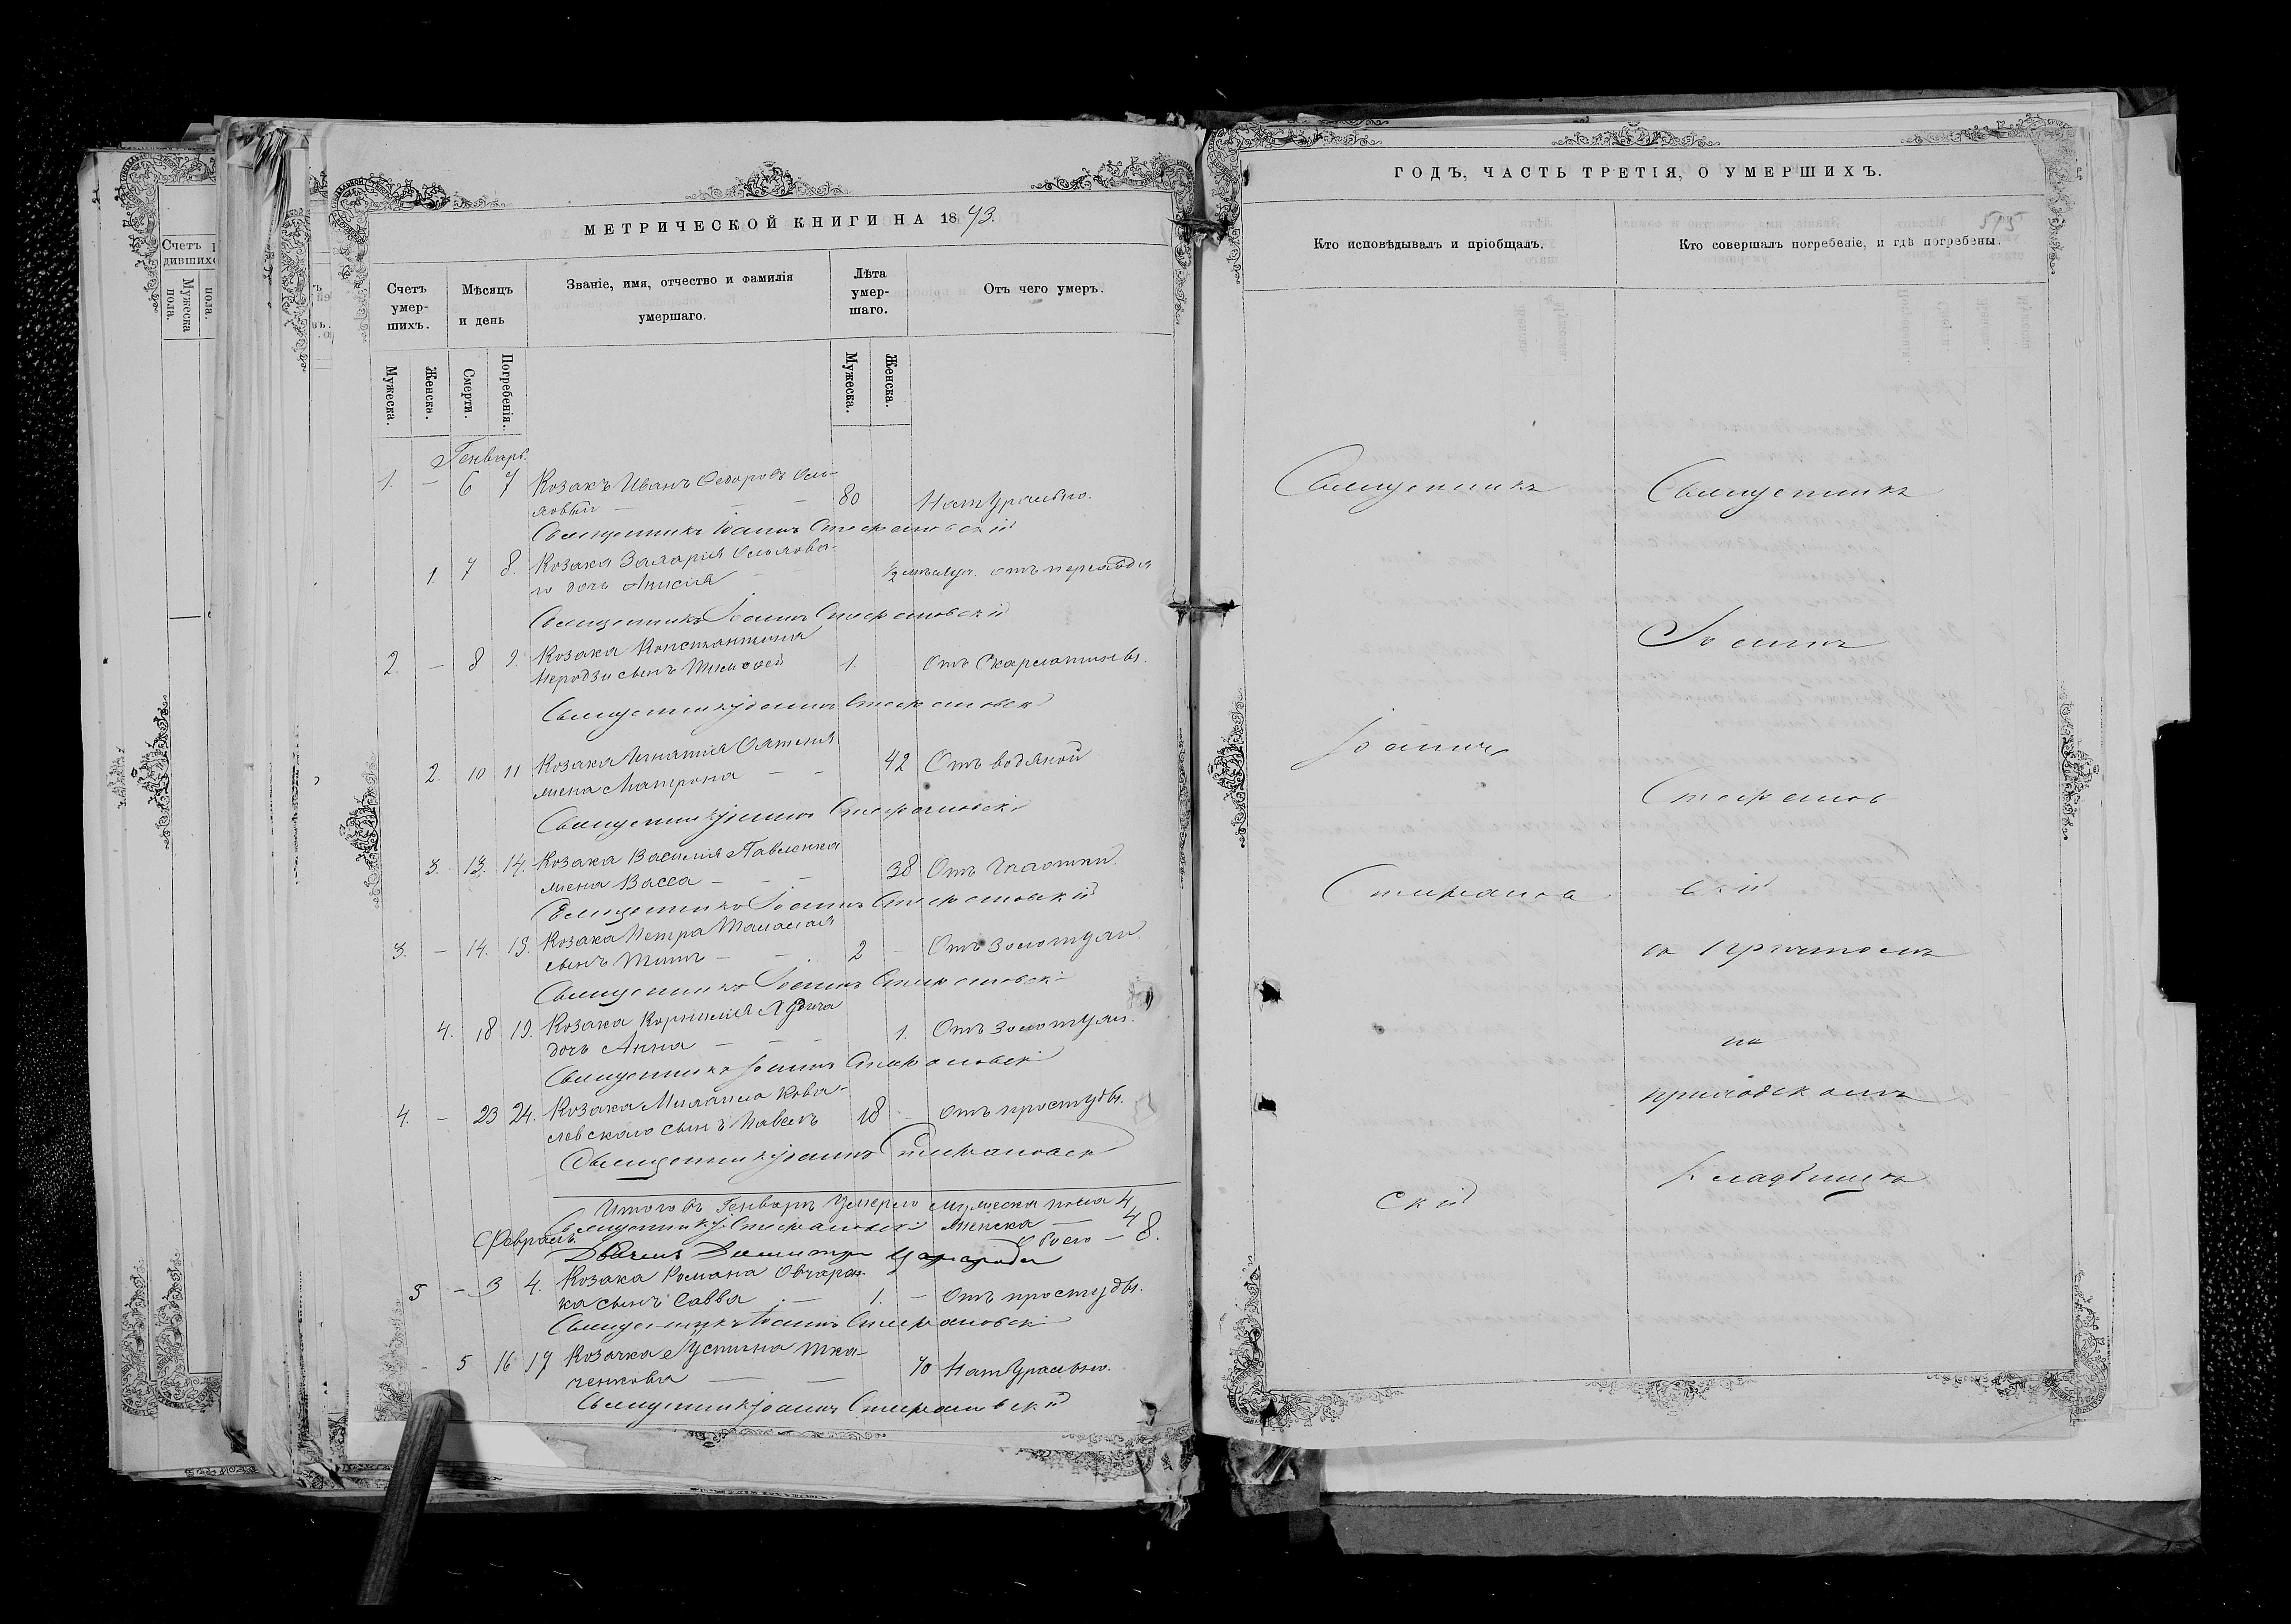 МЕТРИЧЕСКОЙ КНИГИ НА 1873.
Счетъ умер-шихъ.
Мѣсяцъ и день
Званіе, имя, отчество и фамилія умершаго.
Лѣта умер-шаго.
Отъ чего умеръ.
Мужеска.
Женска.
Смерти.
Погребенія.
Мужеска.
Женска.
Генварь.
1. – 6 7 Козакъ Иванъ Федоровъ
80 Натурально.
Священникъ Іоаннъ Стефановскій
1. 7 8. Козака Захарія
го дочь Анисія
Священникъ Іоаннъ Стефановскій
2. – 8 9. Козака Константина
сынъ Тимофей 1. Отъ Скарлатины.
Священникъ Іоаннъ Стефановскі
2. 10 11 Козака Игнатія
жена Матрона – – 42 Отъ водяной
Священникъ Іоаннъ Стефановскі
3. 13. 14. Козака Василія Павленка
жена Васса – – – 38 Отъ
Священникъ Іоаннъ Стефановскій
3. – 14. 15. Козака Петра
сынъ Титъ – – 2 – Отъ Золотухи.
Священникъ Іоаннъ Стефановскі
4. 18 19. Козака Корнилія
дочь Анна – – – 1. Отъ Золотухи.
Священникъ Іоаннъ Стефановскі
4. – 23 24. Козака Михаила Кова-
левскаго сынъ Павелъ 18 – Отъ простуды.
Священникъ Іоаннъ Стефановск
Итого въ Генварѣ Умерло мужеска пола 4
Священникъ І. Стефановскі женска — 4
Февраль. Обоего — 8.
Дьячекъ Димитрі
5 – 3 4. Козака Романа Овчарен-
ка сынъ Савва – 1. – Отъ простуды.
Священникъ Іоаннъ Стефановскі
– 5 16 17 Козачка Устина Тка-
ченкова — — 70 Натурально.
Священникъ Іоаннъ Стефановскій
Счетъ
дившихс
Мужеска пола.
пола.
ГОДЪ, ЧАСТЬ ТРЕТІЯ, О УМЕРШИХЪ.
515
Кто исповѣдывалъ и пріобщалъ.
Кто совершалъ погребеніе, и гдѣ погребены.
Священникъ
Іоаннъ
Стефанов
скій
Священникъ
Іоаннъ
Стефанов
скій
съ причтомъ
на
приходскомъ
кладбищѣ